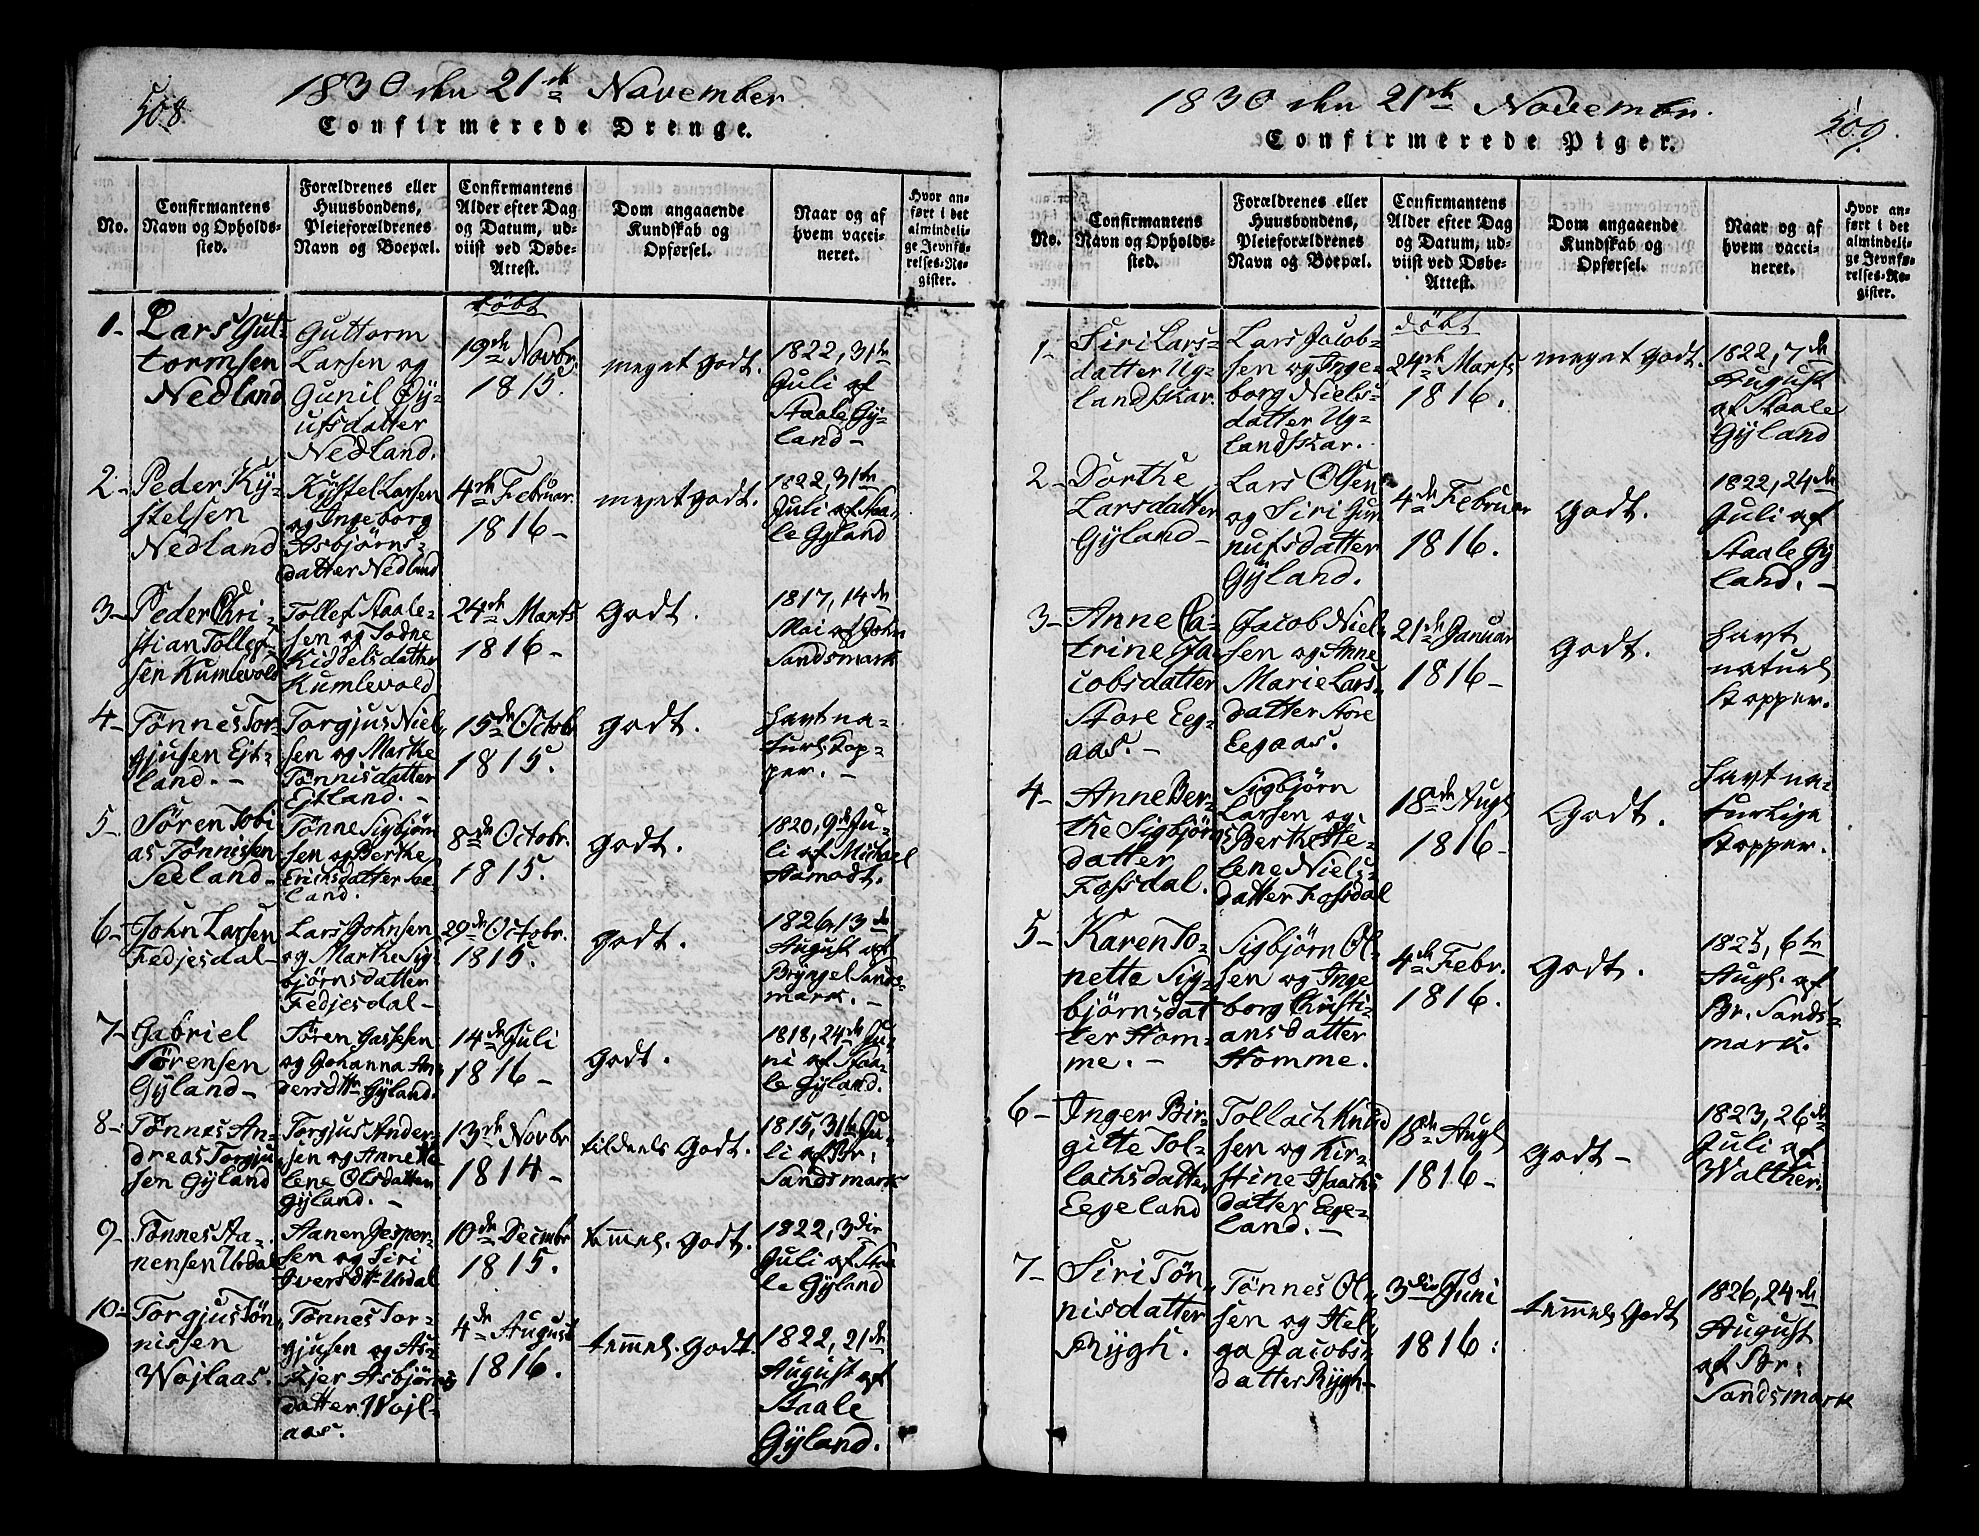 508.
1830 den 21de November
Confirmerede Drenge.
No.
Confirmantens
Navn og Opholds-
sted.
Forældrenes eller
Huusbondens,
Pleieforældrenes
Navn og Boepæl.
Confirmantens
Alder efter Dag
og Datum, ud-
viist ved Døbe-
Attest.
Dom angaaende
Kundskab og
Opførsel.
Naar og af
hvem vacci-
neret.
Hvor an-
ført i det
almindeli-
ge Jevnfø-
relses-Re-
gister.
1-
Lars Gut-
tormsen
Nedland
Guttorm
Larsen og
Gunil Øy-
ufsdatter
Nedland.
døbt
19de Novbr.
1815.
meget godt.
1822, 31te
Juli af
Staale Gy-
land-
2-
Peder Ky-
stelsen
Nedland
Kystel Larsen
og Ingeborg
Asbjørns-
datter Nedland
4de Februar.
1816-
meget godt.
1822, 31te
Juli af Staa-
le Gyland
3-
Peder Chri-
stian Tollef-
sen Kumlevold
Tollef Staale-
sen og Todne
Kiddelsdatter
Kumlevold
24de Marts
1816-
Godt.
1817, 14de
Mai af John
Sandsmark
4-
Tønnes Tor-
gjusen Ejt-
land.-
Torgjus Niel-
sen og Marthe
Tønnisdatter
Ejtland.-
15de Octobr
1815.
godt.
havt na-
turl. Kop-
per.-
5-
Søren Tobi
as Tønnissen
Seeland-
Tønne Sigbjørn
sen og Berthe
Erichsdatter See
land.
8de Octobr.
1815.
godt.
1820, 9de Ju-
li af Michael
Aamodt.
6-
John Larsen
Fedjesdal-
Lars Johnsen
og Marthe Sig-
bjørnsdatter
Fedjesdal-
29de Octobr.
1815.
godt.
1826, 13de
August af
Bryngel Sands-
mark.-
7-
Gabriel
Sørensen
Gyland-
Søren Gassesen
og Johanna An
dersdtr Gyland.
14de Juli
1816-
godt.
1818, 24de Ju-
ni af Staa-
le Gyland.
8-
Tønnes An-
dreas Torgju
sen Gyland
Torgjus Ander-
sen og Anne He
lene Olsdatter
Gyland.-
13de Novbr
1814-
tildeels Godt.
1815, 31te Ju-
li af Br:
Sandsmark
9-
Tønnes Aa-
nensen Urdal
Aanen Jesper-
sen og Siri
Iversdtr Urdal
10de Decmbr
1815.
temmel. Godt.
1822, 3die
Juli af Staa
le Gyland
10-
Torgjus Tøn-
nissen
Wojlaas.
Tønnes Tor-
gjusen og As-
kjer Asbjørns
datter Wojl-
aas.
4de August
1816.
temmel. Godt.
1822, 21de
August af
Staale
Gyland.
509.
1830 den 21de Novembr.
Confirmerede Piger.
No.
Confirmantens
Navn og Opholds-
sted.
Forældrenes eller
Huusbondens,
Pleieforældrenes
Navn og Boepæl.
Confirmantens
Alder efter Dag
og Datum, ud-
viist ved Døbe-
Attest.
Dom angaaende
Kundskab og
Opførsel.
Naar og af
hvem vacci-
neret.
Hvor an-
ført i det
almindeli-
ge Jevnfø-
relses-Re-
gister.
1-
Siri Lars-
datter Ug-
landskar.
Lars Jacob-
sen og Inge-
borg Niels-
datter Ug-
landskar.
døbt
24de Marts
1816.
meget godt.
1822, 7de
August
af Staale
Gyland
2-
Dorthe
Larsdatter
Gyland-
Lars Olsen
og Siri Gun
nufsdatter
Gyland.
4de Februar
1816.
Godt.
1822, 24de
Juli af
Staale Gy
land.-
3-
Anne Ca-
trine Ja-
cobsdatter
Store Eeg-
aas.-
Jacob Niel-
sen og Anne
Marie Lars-
datter Store
Eegaas.
21de Januar
1816-
godt.
havt
naturl
Kopper.
4-
Anne Ber-
the Sigbjørns
datter
Fossdal.
Sigbjørn
Larsen og
Berthe He-
lene Niels-
datter Fossdal
18de Augt
1816-
Godt.
havt na-
turlige
Kopper.
5-
Karen To-
nette Sig-
bjørnsdat
ter Hom-
me.-
Sigbjørn Ol-
sen og Inge
borg Christi-
ansdatter
Homme.
4de Febr.
1816.
Godt.
1825, 6te
Augt. af
Br. Sands-
mark.
6-
Inger Bir-
gitte Tol-
lachsdatter
Eegeland
Tollach Knud
sen og Kir-
stine Isaachs
datter Eege-
land.-
18de Augt
1816-
Godt-
1823, 26de
Juli af
Walther.
7-
Siri Tøn-
nisdatter
Rygh.
Tønnes Ol-
sen og Hel-
ga Jacobs-
datter Rygh-
3die Juni
1816:
temmel. Godt
1826, 24de
August
af Br:
Sandsmark